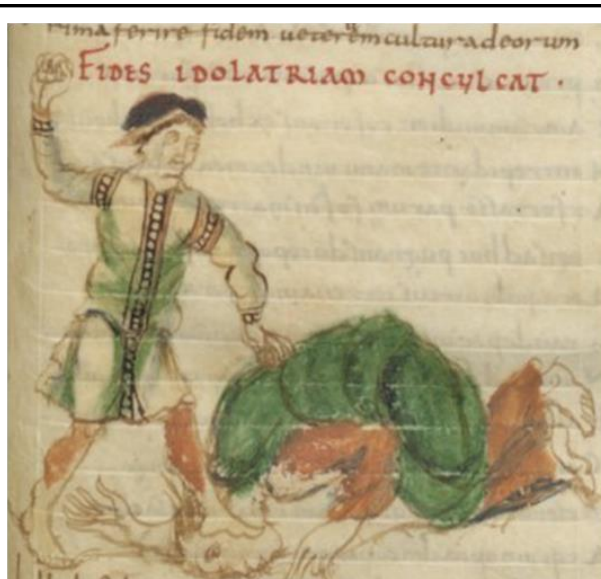 rima ferire fidem ueterum cultura deorum
FIDES IDOLATRIAM CONCULCAT ·